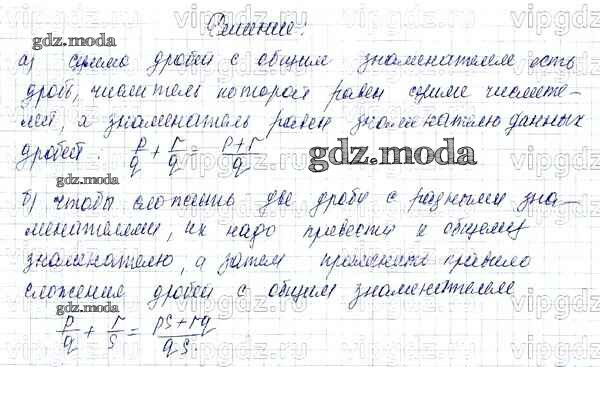 Решение:
а) сумма дробей с общим знаменателем есть
дробь, числитель которая равен сумме числите-
лей, а знаменатель равен знаменателю данных
дробей: p/q + r/q = p+r/q
б) чтобы сложить две дроби с разными зна-
менателями, их надо привести к общему
знаменателю, а затем применить правило
сложения дробей с общим знаменателем
p/q + r/s = ps+rq/qs.
gdz.moda
gdz.moda
gdz.moda
gdz.moda
vipgdz.ru